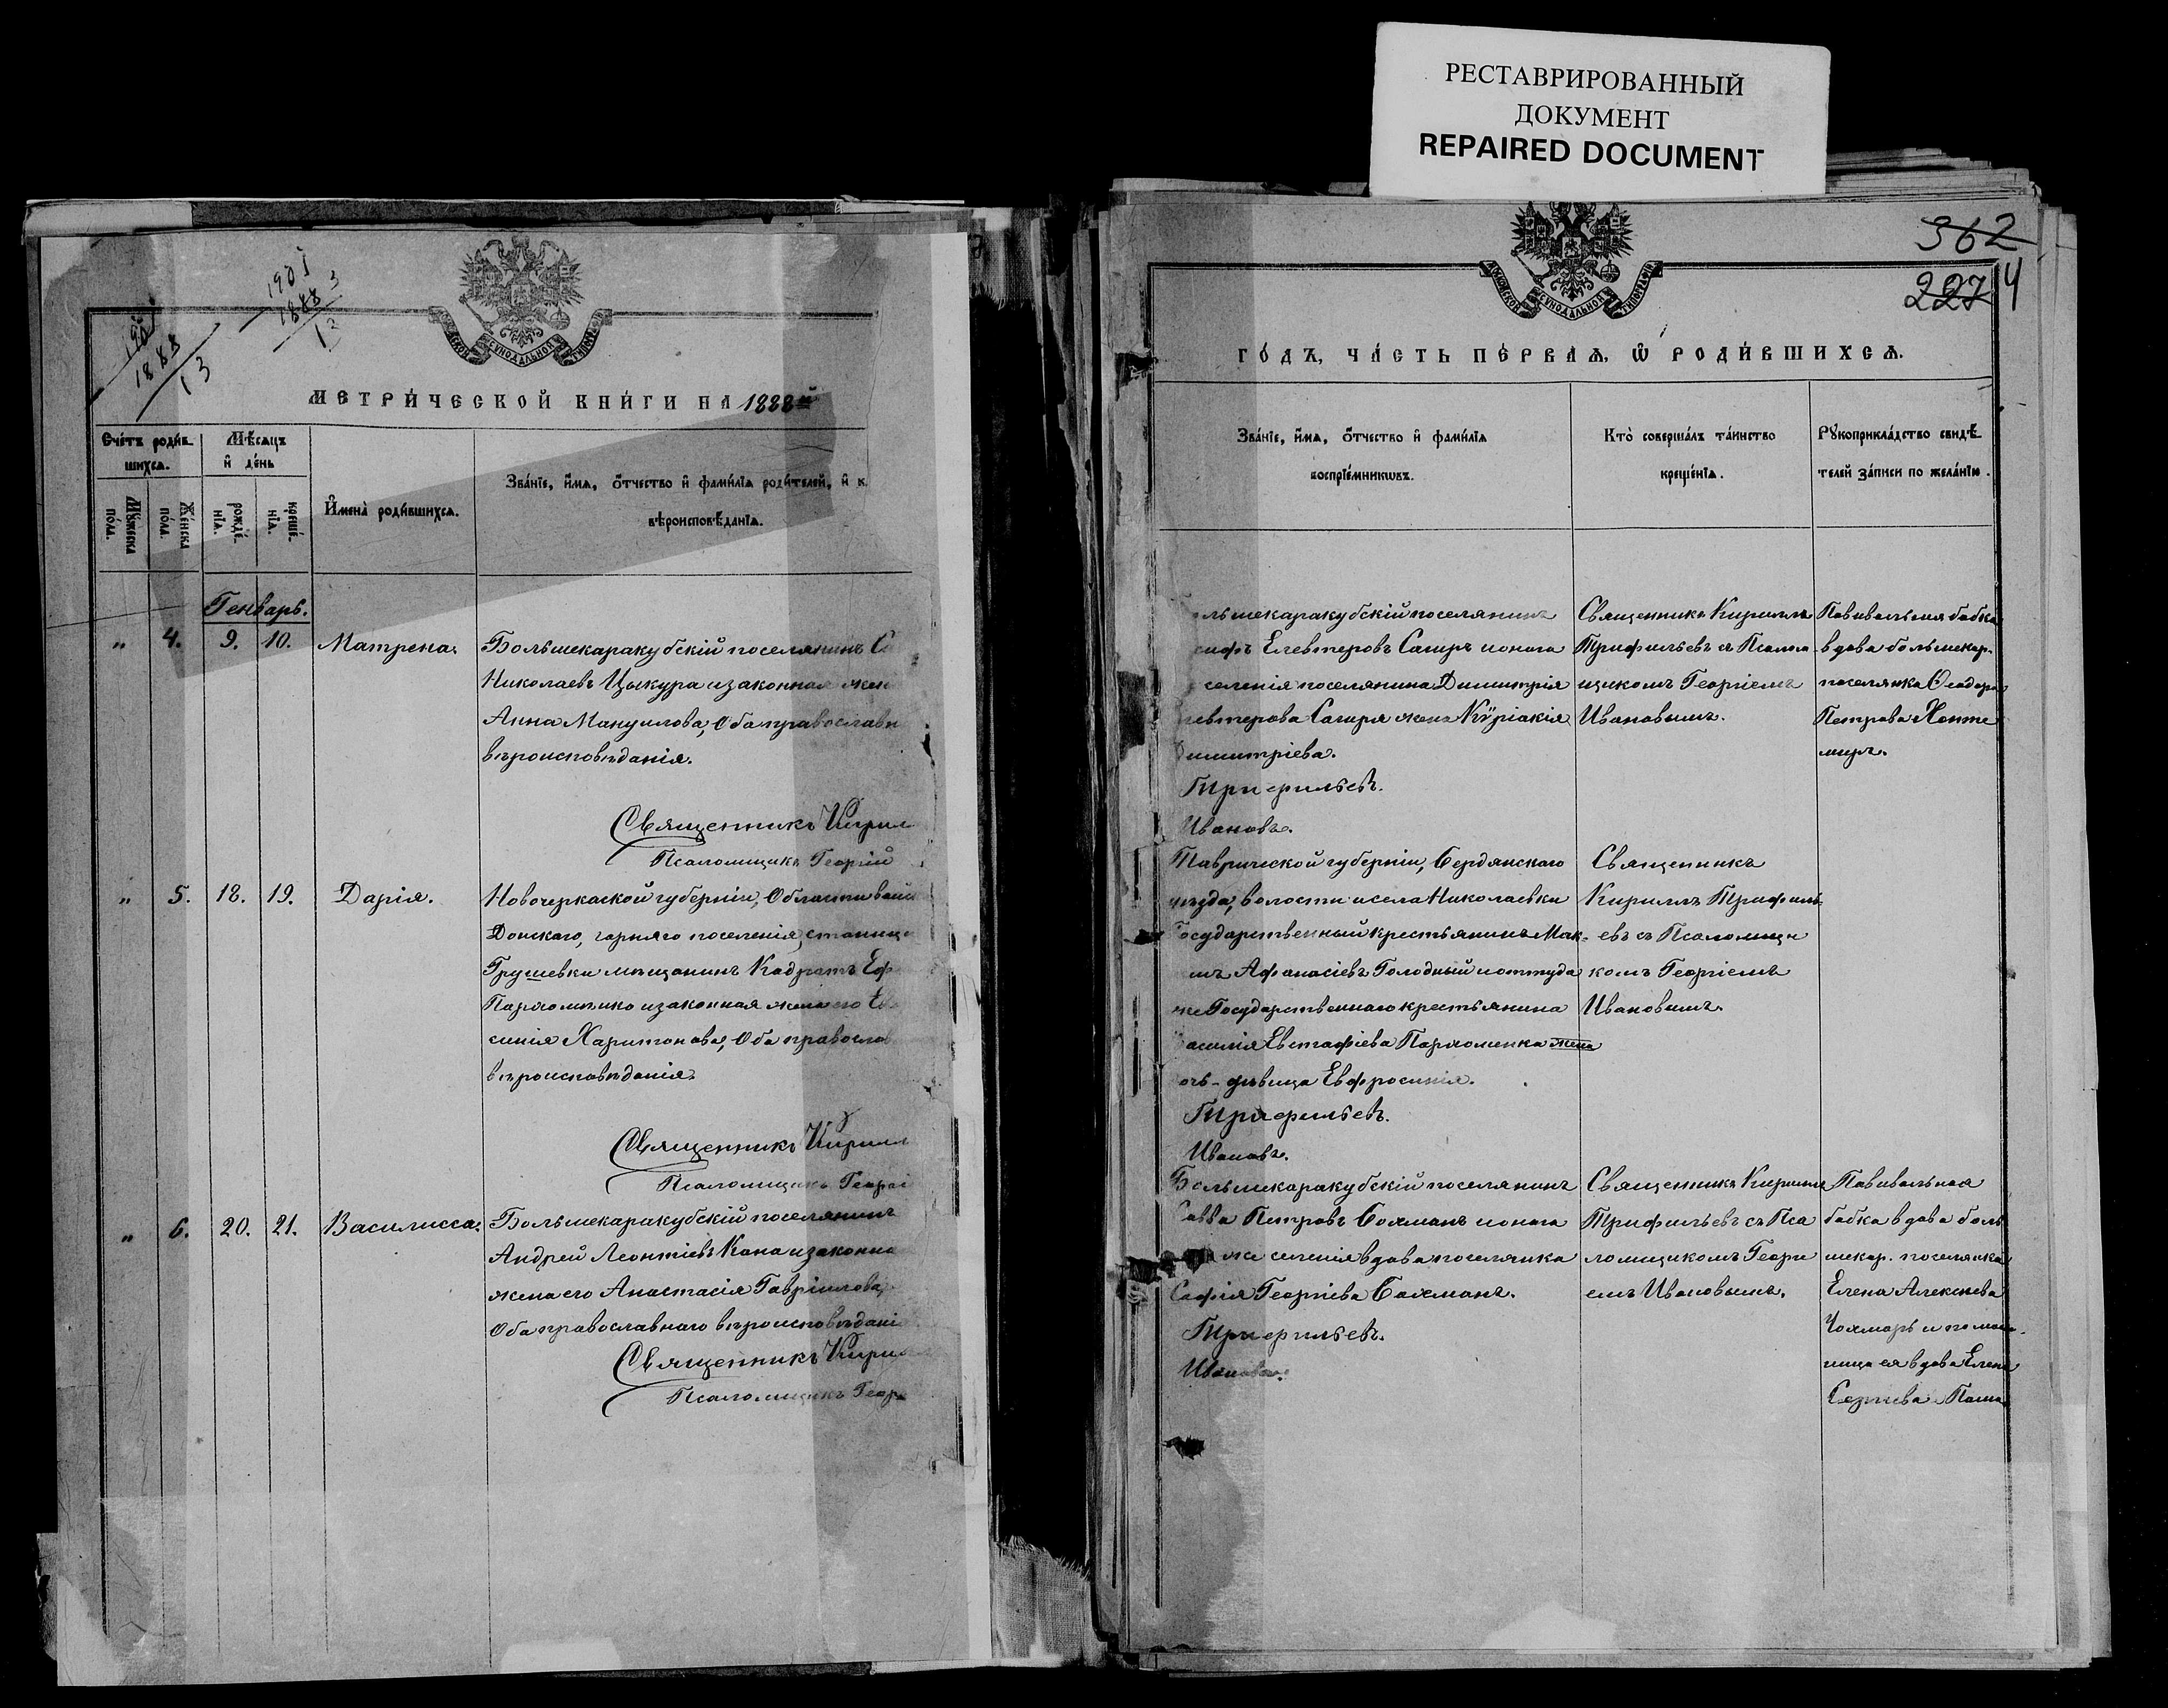 РЕСТАВРИРОВАННЫЙ
ДОКУМЕНТ
REPAIRED DOCUMENT
1901
1888
13
1901
1888 3
13
МЕТРИ́ЧЕСКОЙ КНИ́ГИ НА 1888й
Сче́тъ роди́в-
шихся.
Мѣ́сяцъ
и҆ де́нь
Имена̀ роди́вшихся.
Зва́нїе, и҆́мѧ, о҆́тчество и҆ фами́лїѧ роди́телей, и҆ к.
вѣроисповѣ́данїѧ.
Мꙋ́жеска
по́ла.
Же́нска
по́ла.
рожде́-
нїѧ.
креще́-
нїѧ.
Генварь.
„ 4. 9. 10. Матрена.
Большекаракубскій поселянинъ
Николаевъ Цыкура и законная жен
Анна Мануилова, Оба православн
вѣроисповѣданія.
Священникъ Кирил
Псаломщикъ Георгій
„ 5. 18. 19. Дарія.
Новочеркаской губерніи, Области вой
Донскаго, горняго поселенія, станицы
Грушевки мѣщанинъ Кодратъ Еф
Пархоменко и законная жена его Ев
синія Харитонова, Оба правослов
вѣроисповѣданія.
Священникъ Кирилл
Псаломщикъ Георгі
„ 6. 20. 21. Василисса.
Большекаракубскій поселянинъ
Андрей Леонтіевъ Кана и законна
жена его Анастасія Гавріилова,
Оба православнаго вѣроисповѣдані
Священникъ Кирил
Псаломщикъ Геор
МОСКОВСКОЙ СѴНОДАЛЬНОЙ ТИПОГРАФІИ
362
227 4
ГО́ДЪ, ЧА́СТЬ ПЕ́РВАЯ, Ѡ҆ РОДИ́ВШИХСЯ.
Зва́нїе, и҆́мѧ, о҆́тчество и҆ фами́лїѧ
воспрїе́мникѡвъ.
Кто̀ соверша́лъ та́инство
креще́нїѧ.
Рꙋкоприкла́дство свидѣ́-
телей за́писи по жела́нїю.
льшекаракубскій поселянинъ
сифъ Елевтеровъ Сагиръ и онаго
селенія поселянина Димитрія
левтерова Сагиря жена Кѵріакія
Димитріева.
Трифильевъ.
Ивановъ.
Священникъ Кириллъ
Трифильевъ съ Псалом-
щикомъ Георгіемъ
Ивановымъ.
Повивальная бабка
вдова большекар.
поселянка Ѳеодора
Петрова Хонте
миръ.
Таврической губерніи, Бердянскаго
уѣзда, волости и села Николаевки
Государственный крестьянинъ Мак-
имъ Афанасіевъ Голодный и оттуда
же Государственнаго крестьянина
Василія Евстафіева Пархоменка жена
очь-дѣвица Евфросинія.
Трифильевъ.
Ивановъ.
Священникъ
Кириллъ Трифиль-
евъ съ Псаломщи
комъ Георгіемъ
Ивановымъ.
Большекаракубскій поселянинъ
Савва Петровъ Бохманъ и онаго
же селенія вдова поселянка
Софія Георгіева Бахманъ.
Трифильевъ.
Ивановъ.
Священникъ Кириллъ
Трифильевъ съ Пса
ломщикомъ Георгі
емъ Ивановымъ.
Повивальная
бабка вдова боль
шекар. поселянка
Елена Алексѣева
Чохмаръ и помощ-
ница ея вдова Елена
Сергѣева Паша